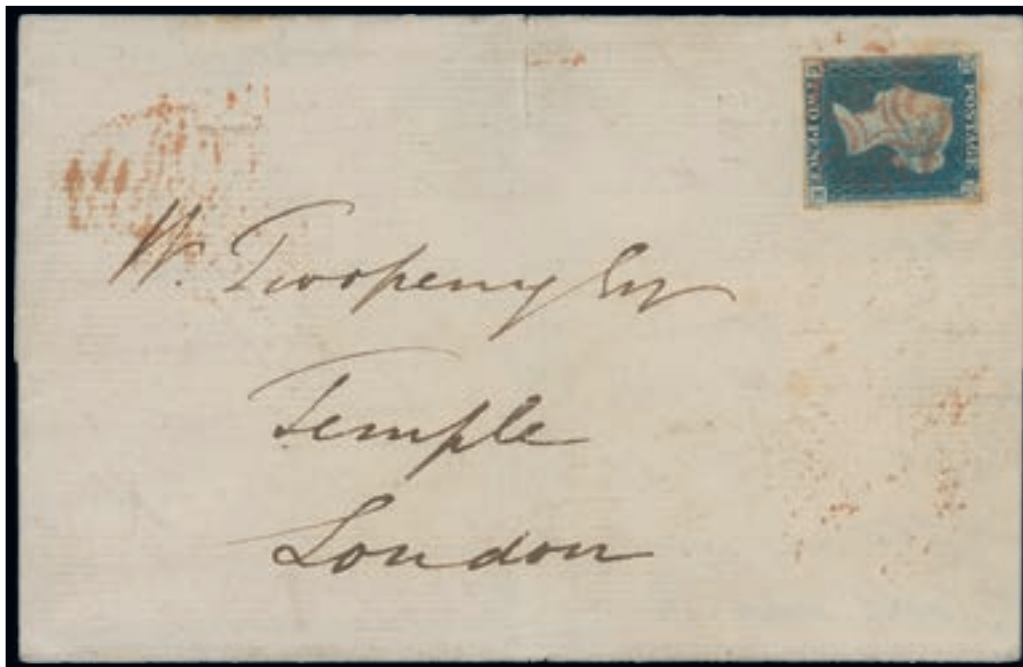 POSTAGE
TWO PENCE
W. Twopenny Esq
Temple
London